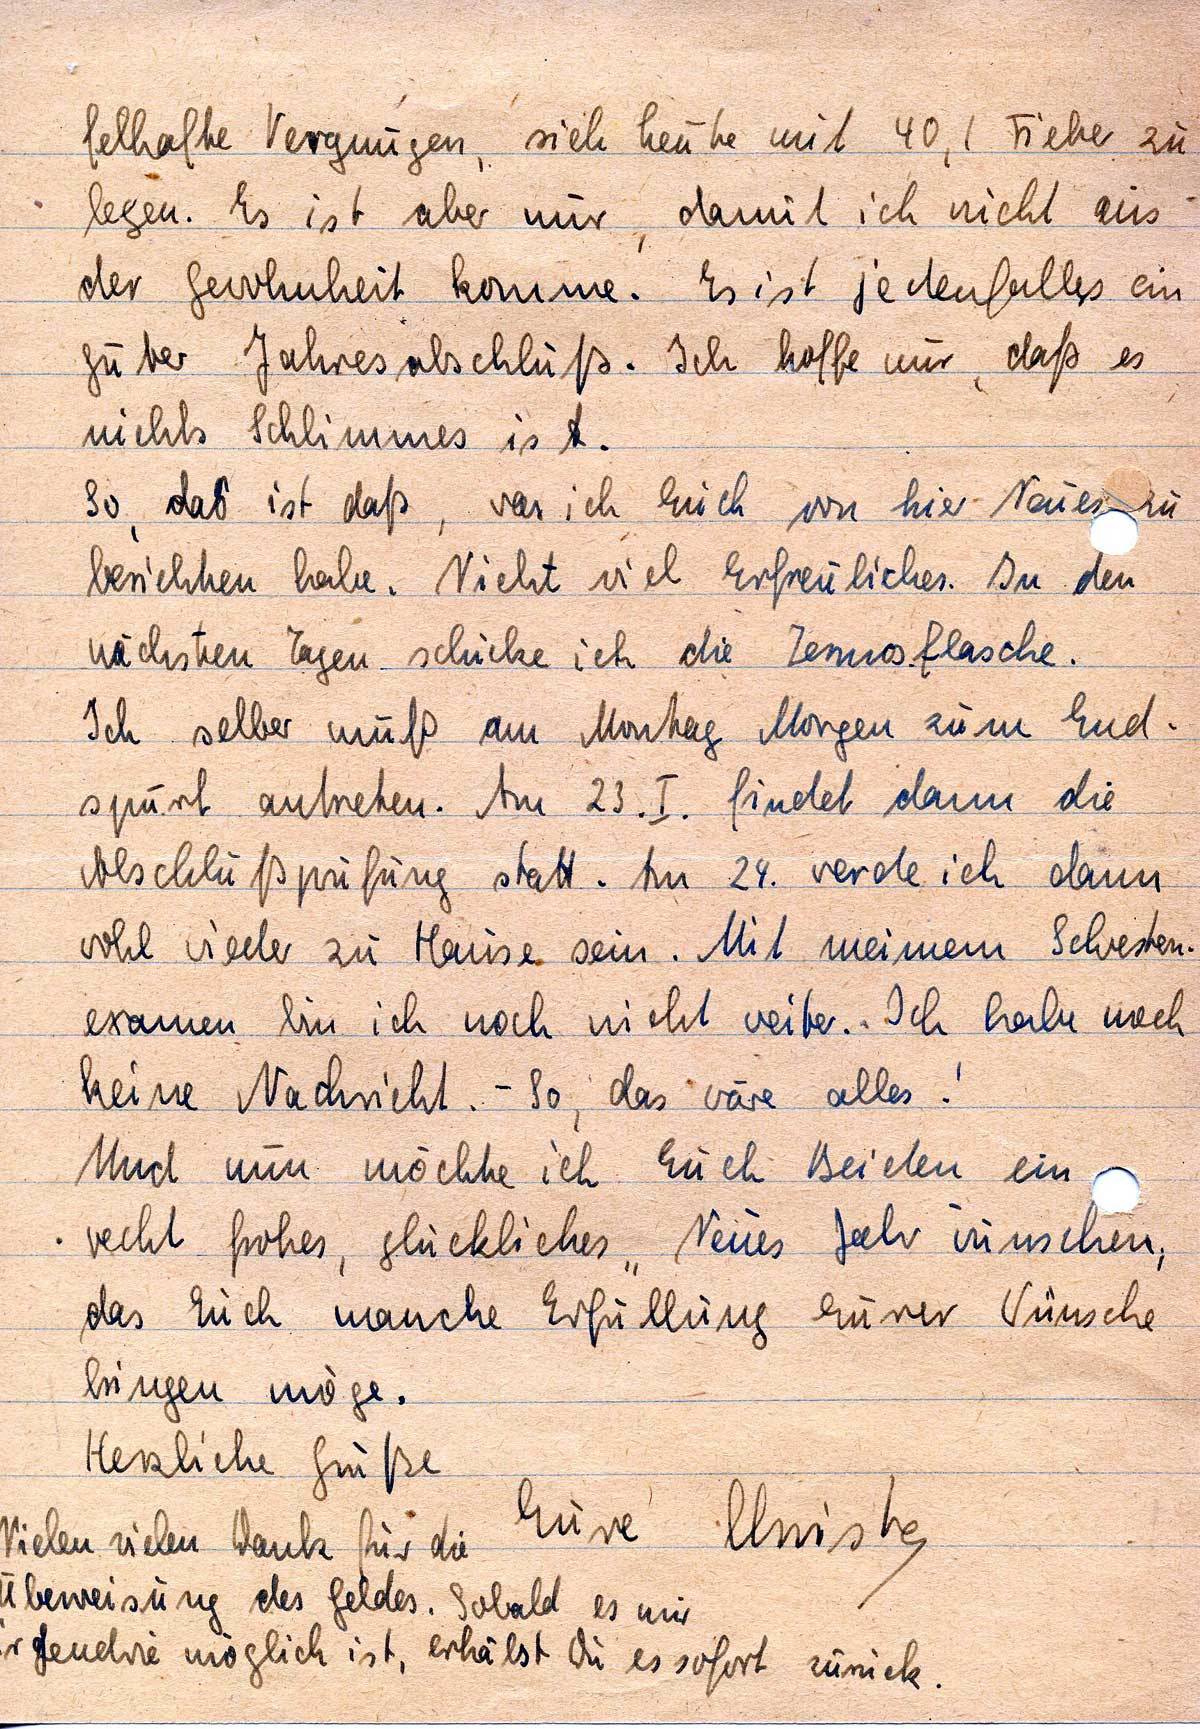 felhafte Vergnügen, sich heute mit 40,1 Fieber zu
legen. Es ist aber nur, damit ich nicht aus
der Gewohnheit komme. Es ist jedenfalles ein
guter Jahresabschluß. Ich hoffe nur, daß es
nichts Schlimmes ist.
So, das ist daß, was ich Euch von hier Neues zu
berichten habe. Nicht viel Erfreuliches. In den
nächsten Tagen schicke ich die Termosflasche.
Ich selber muß am Montag Morgen zum End-
spurt antreten. Am 23.I. findet dann die
Abschlußprüfung statt. Am 24. werde ich dann
wohl wieder zu Hause sein. Mit meinem Schwestern-
examen bin ich noch nicht weiter. Ich habe noch
keine Nachricht. - So, das wäre alles!
Und nun möchte ich Euch Beiden ein
recht frohes, glückliches „ Neues Jahr wünschen,
das Euch manche Erfüllung Eurer Wünsche
bringen möge.
Herzliche Grüße
Eure Christa
Vielen vielen Dank für die
Überweisung des Geldes. Sobald es mir
irgendwie möglich ist, erhälst Du es sofort zurück.